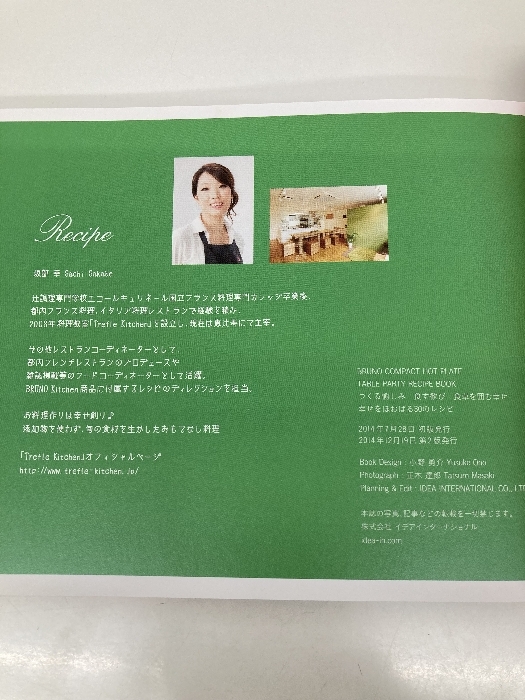 Recipe
坂部 幸 Sachi Sakabe
辻調理専門学校エコールキュリネール国立フランス料理専門カレッジ卒業後、
都内フランス料理、イタリア料理レストランで経験を積み、
料理教室「Trefle Kitchen」を設立し、現在は恵比寿にて主宰。
その他レストランコーディネーターとして、
都内フレンチレストランのプロデュースや
雑誌掲載等のフードコーディネーターとして活躍。
BRUNO Kitchen 商品に付属するレシピのディレクションを担当。
お料理作りは幸せ創り♪
添加物を使わず、旬の食材を生かしたおもてなし料理
「Trefle Kitchen」オフィシャルページ
http://www.trefle-kitchen.jp/
BRUNO COMPACT HOT PLATE
TABLE PARTY RECIPE BOOK
つくる愉しみ 食す歓び 食卓を囲む幸せ
幸せをほおばる30のレシピ
2014年7月28日 初版発行
2014年12月19日 第2版発行
Book Design : 小野 勇介 Yusuke Ono
Photograph : 正木 達郎 Tatsuro Masaki
Planning & Edit : IDEA INTERNATIONAL CO., LT
本誌の写真、記事などの転載を一切禁じます。
株式会社 イデアインターナショナル
idea-in.com